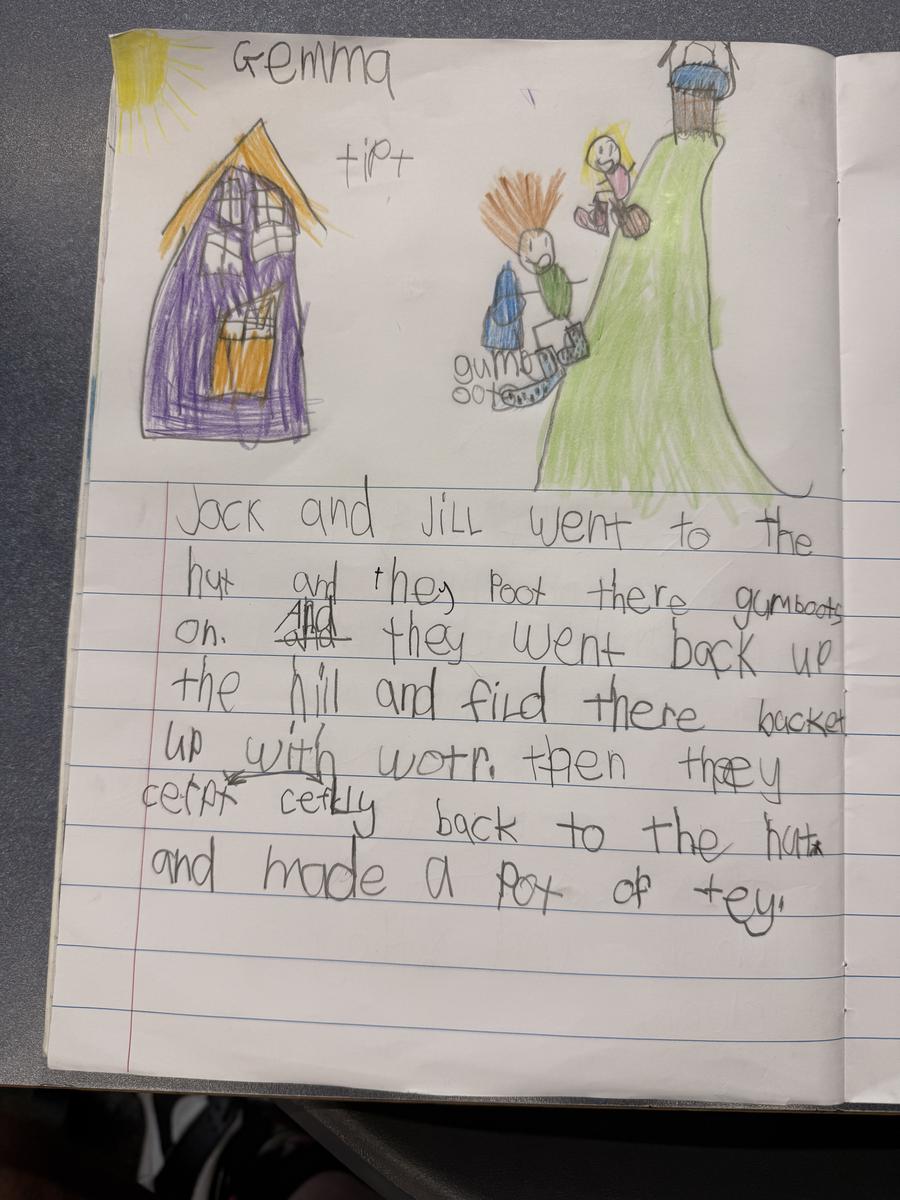 Gemma
tipt
gumb
oots
Jack and Jill went to the
hut and they poot there gumboots
on. And they went back up
the hill and fild there backet
up with wotr. then they
cerpt cerfkly back to the hut
and made a pot of tey.